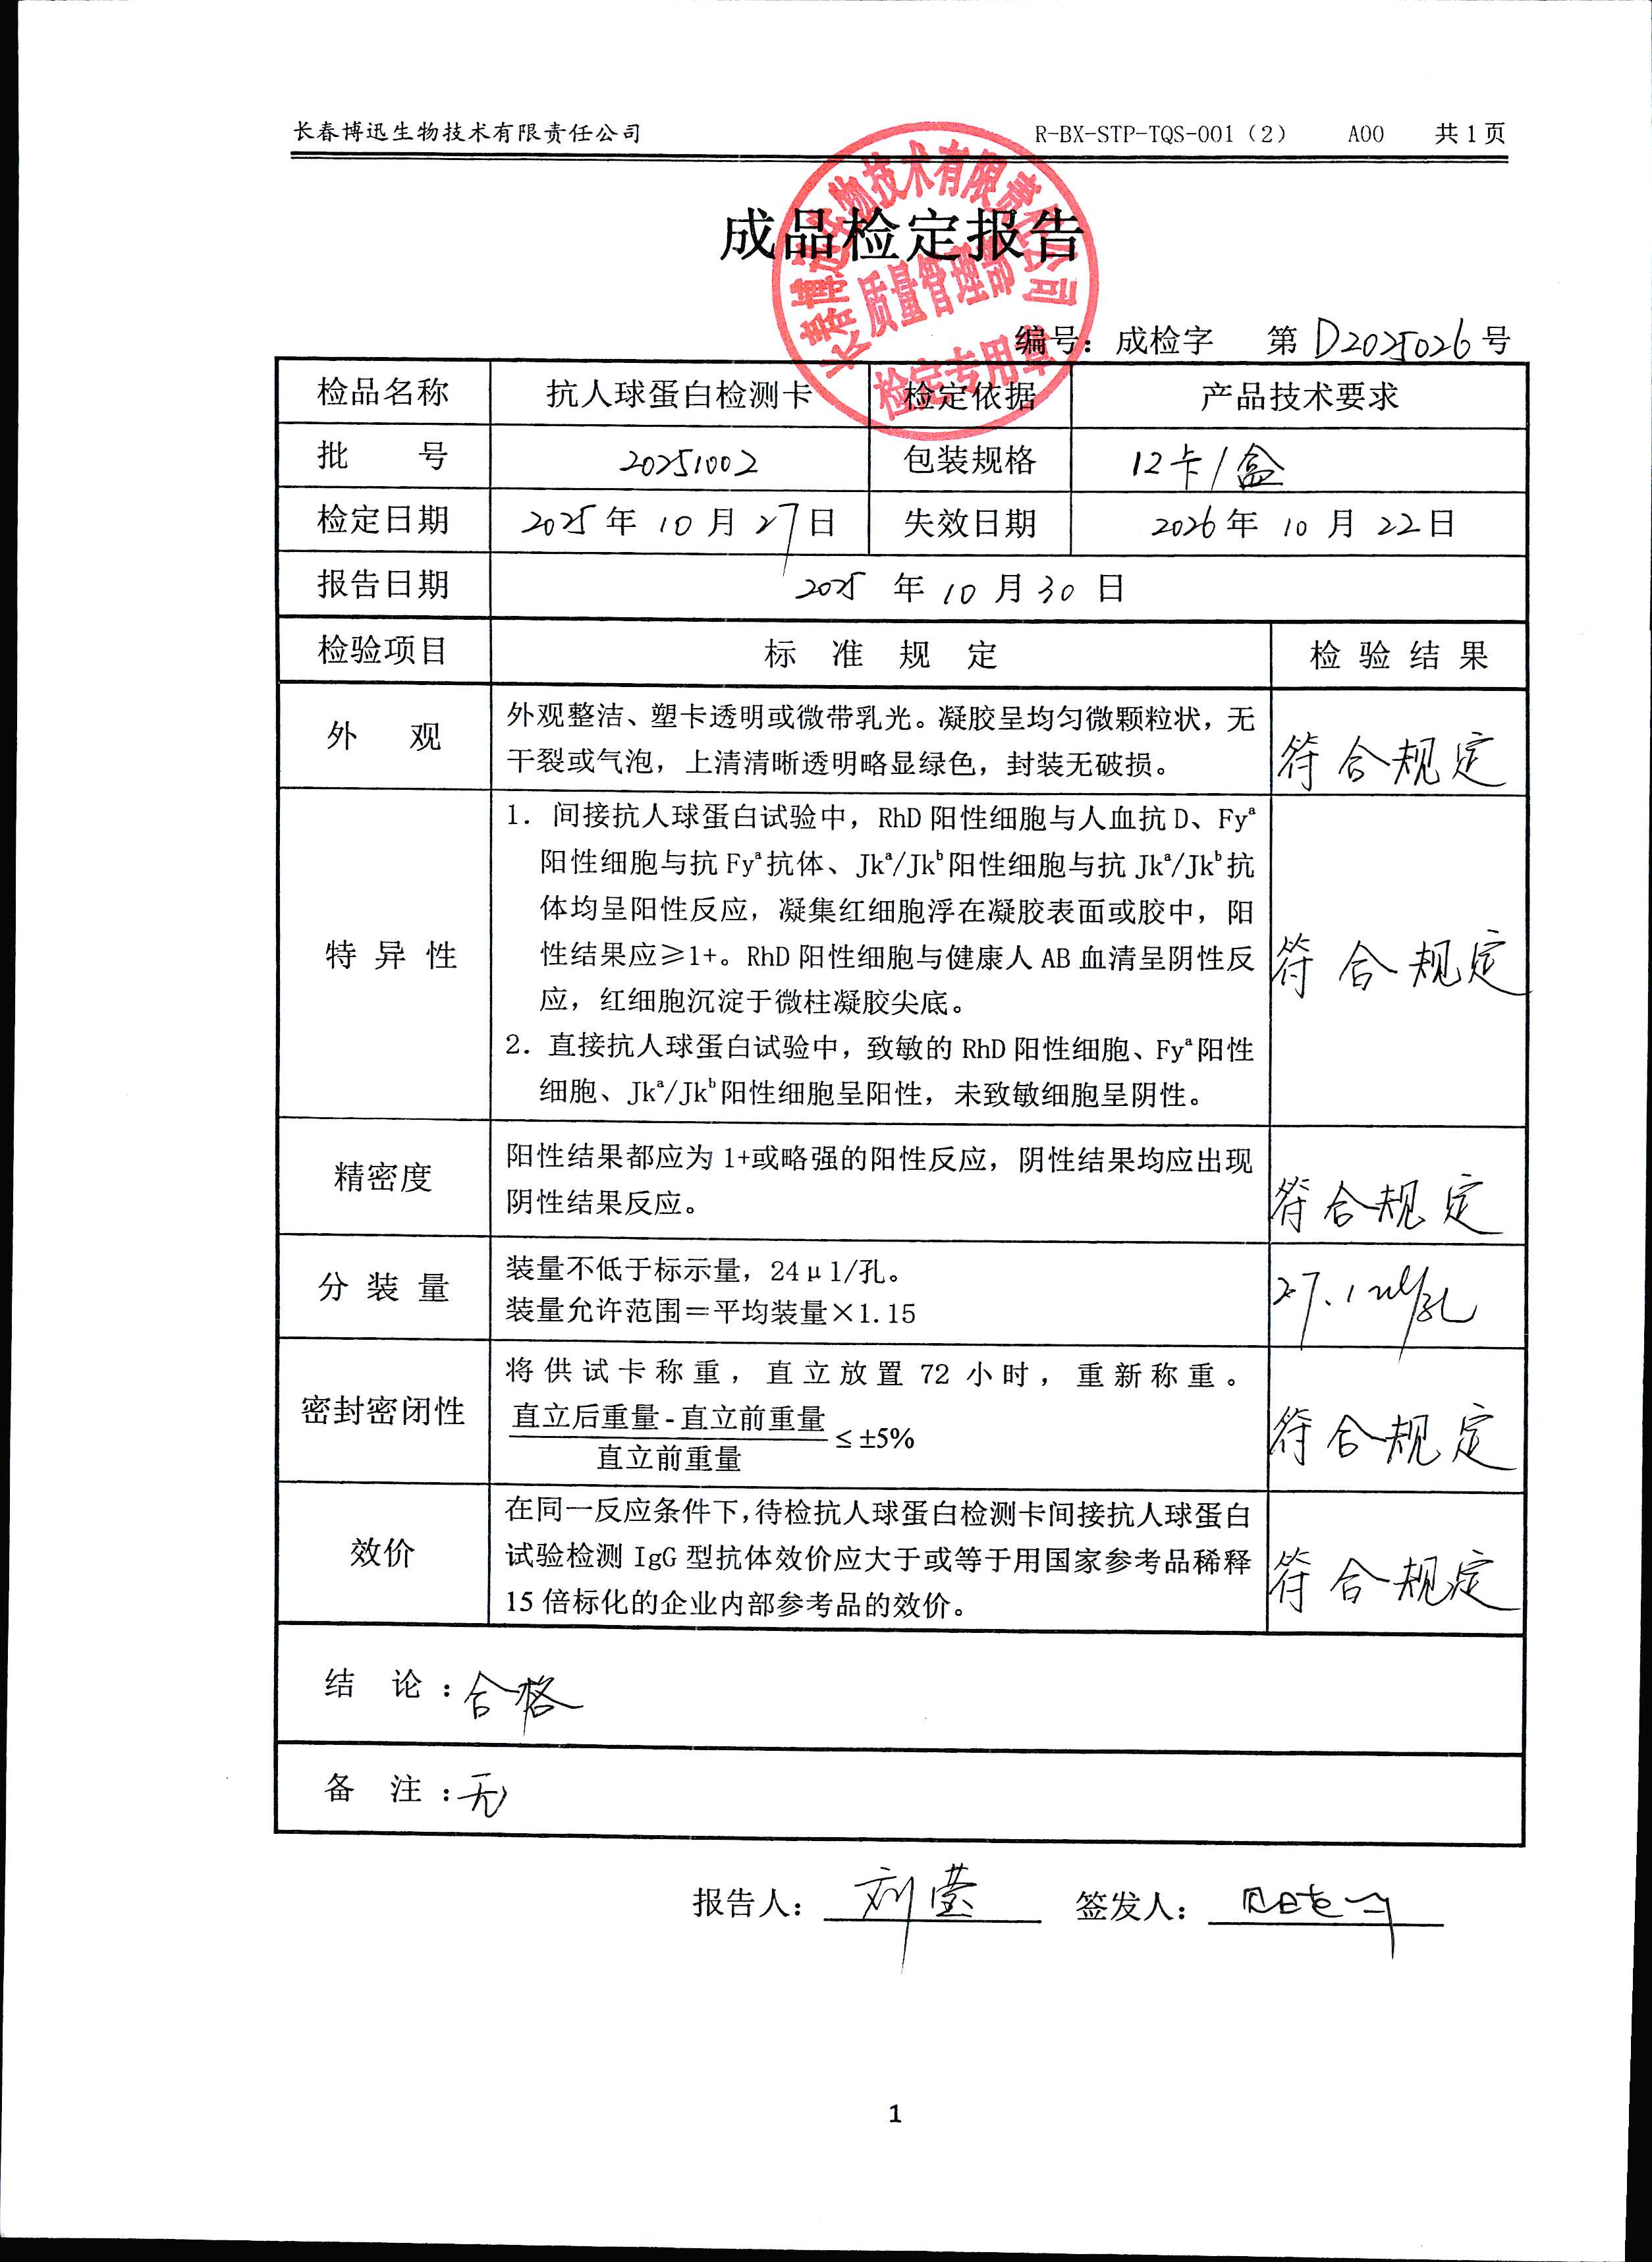 长春博迅生物技术有限责任公司 R-BX-STP-TQS-001（2） A00 共1页
成品检定报告
长春博迅生物技术有限责任公司
质量管理部
检定专用章
编号：成检字 第D2025026号
检品名称 抗人球蛋白检测卡 检定依据 产品技术要求
批 号 20251002 包装规格 12卡/盒
检定日期 2025年10月27日 失效日期 2026年10月22日
报告日期 2025年10月30日
检验项目 标 准 规 定 检 验 结 果
外 观 外观整洁、塑卡透明或微带乳光。凝胶呈均匀微颗粒状，无
干裂或气泡，上清清晰透明略显绿色，封装无破损。 符合规定
1. 间接抗人球蛋白试验中，RhD阳性细胞与人血抗D、Fyª
阳性细胞与抗Fyª抗体、Jkª/Jkᵇ阳性细胞与抗Jkª/Jkᵇ抗
体均呈阳性反应，凝集红细胞浮在凝胶表面或胶中，阳
特 异 性 性结果应≥1+。RhD阳性细胞与健康人AB血清呈阴性反 符合规定
应，红细胞沉淀于微柱凝胶尖底。
2. 直接抗人球蛋白试验中，致敏的RhD阳性细胞、Fyª阳性
细胞、Jkª/Jkᵇ阳性细胞呈阳性，未致敏细胞呈阴性。
精密度 阳性结果都应为1+或略强的阳性反应，阴性结果均应出现
阴性结果反应。 符合规定
分 装 量 装量不低于标示量，24μl/孔。 27.1ul/孔
装量允许范围＝平均装量×1.15
将供试卡称重，直立放置72小时，重新称重。
密封密闭性 直立后重量-直立前重量 ≤±5% 符合规定
直立前重量
在同一反应条件下，待检抗人球蛋白检测卡间接抗人球蛋白
效价 试验检测IgG型抗体效价应大于或等于用国家参考品稀释 符合规定
15倍标化的企业内部参考品的效价。
结 论：合格
备 注：无
报告人：刘莹 签发人：
1